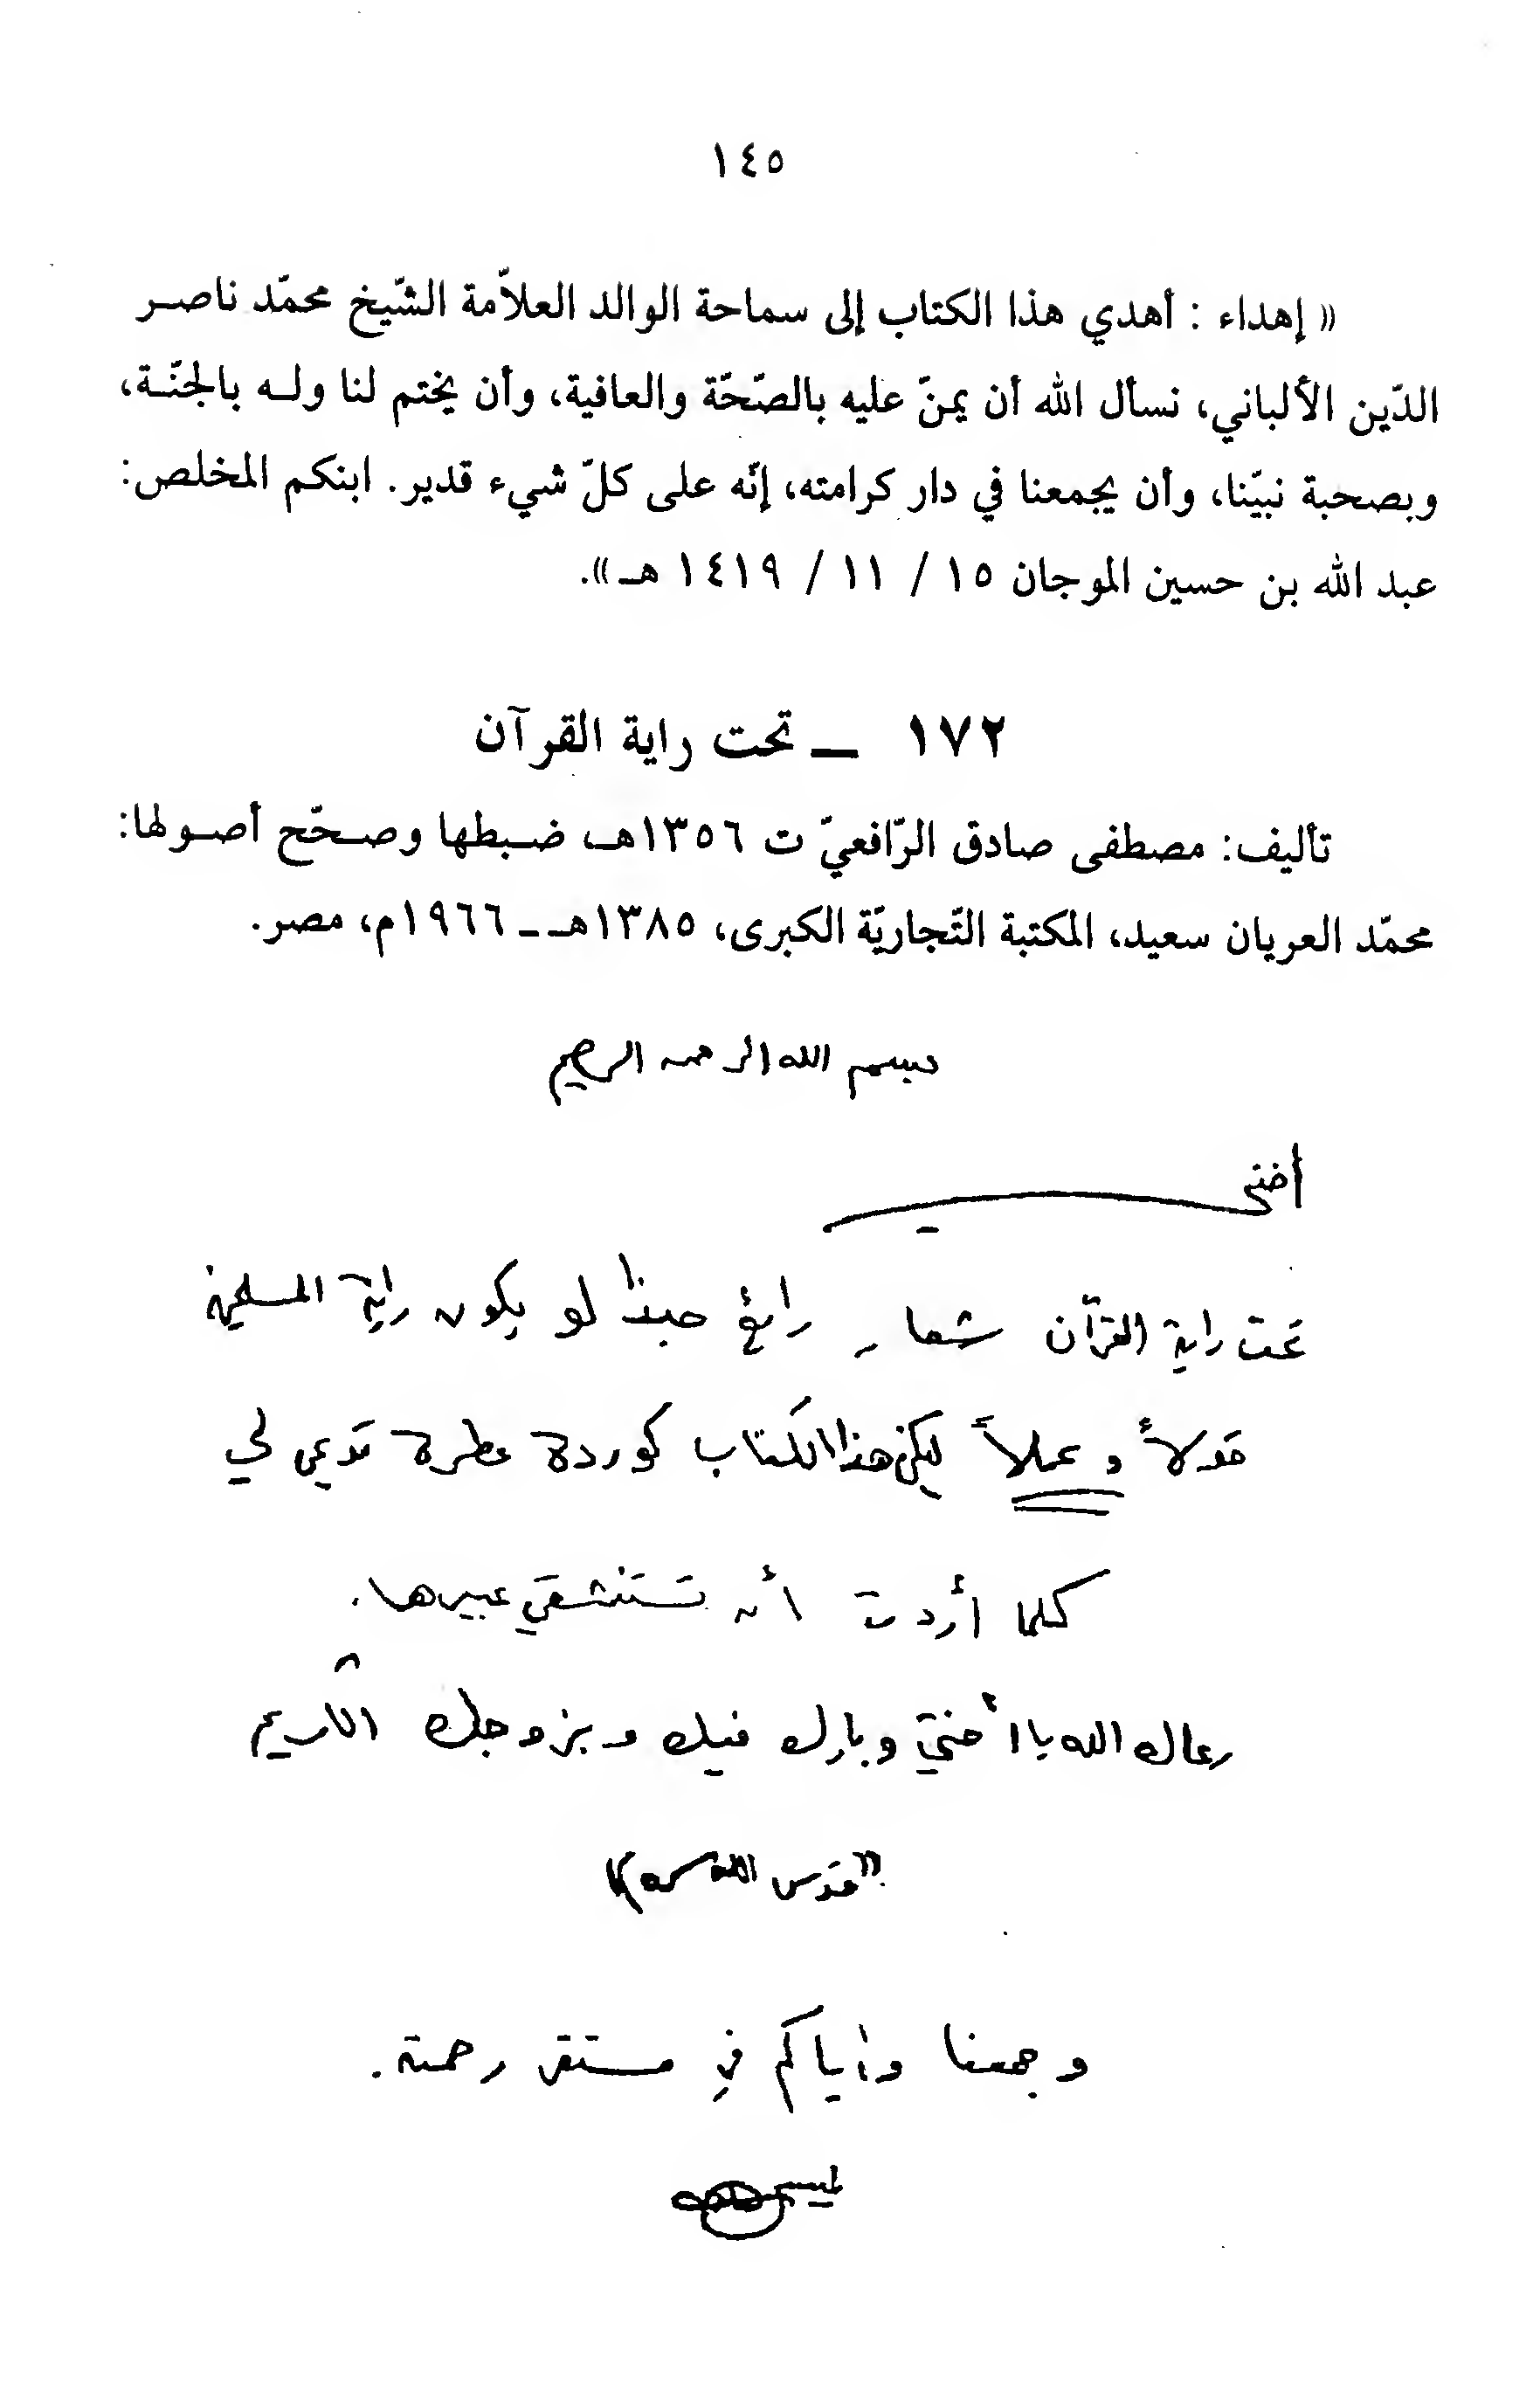 ١٤٥
« إهداء : أهدي هذا الكتاب إلى سماحة الوالد العلاّمة الشّيخ محمّد ناصر
الدّين الألباني، نسأل الله أن يمنّ عليه بالصّحّة والعافية، وأن يختم لنا وله بالجنّة،
وبصحبة نبيّنا، وأن يجمعنا في دار كرامته، إنّه على كلّ شيء قدير. ابنكم المخلص:
عبد الله بن حسين الموجان ١٥ / ١١ / ١٤١٩ هـ».
١٧٢ – تحت راية القرآن
تأليف: مصطفى صادق الرّافعيّ ت ١٣٥٦هـ، ضبطها وصحّح أصولها:
محمّد العريان سعيد، المكتبة التّجاريّة الكبرى، ١٣٨٥هـ - ١٩٦٦م، مصر.
بسم الله الرحمن الرحيم
أختي
تحت راية القرآن شعار رائع حبذا لو يكون راية المسلمين
قولاً وعملاً ليكن هذا الكتاب كوردة عطرة تدعى لي
كلما أردت أن تستنشقي عبيرها.
رعاك الله يا أختي وبارك فيك وبزوجك الكريم
"قدس الله سره"
وجمعنا وإياكم في مستقر رحمته.